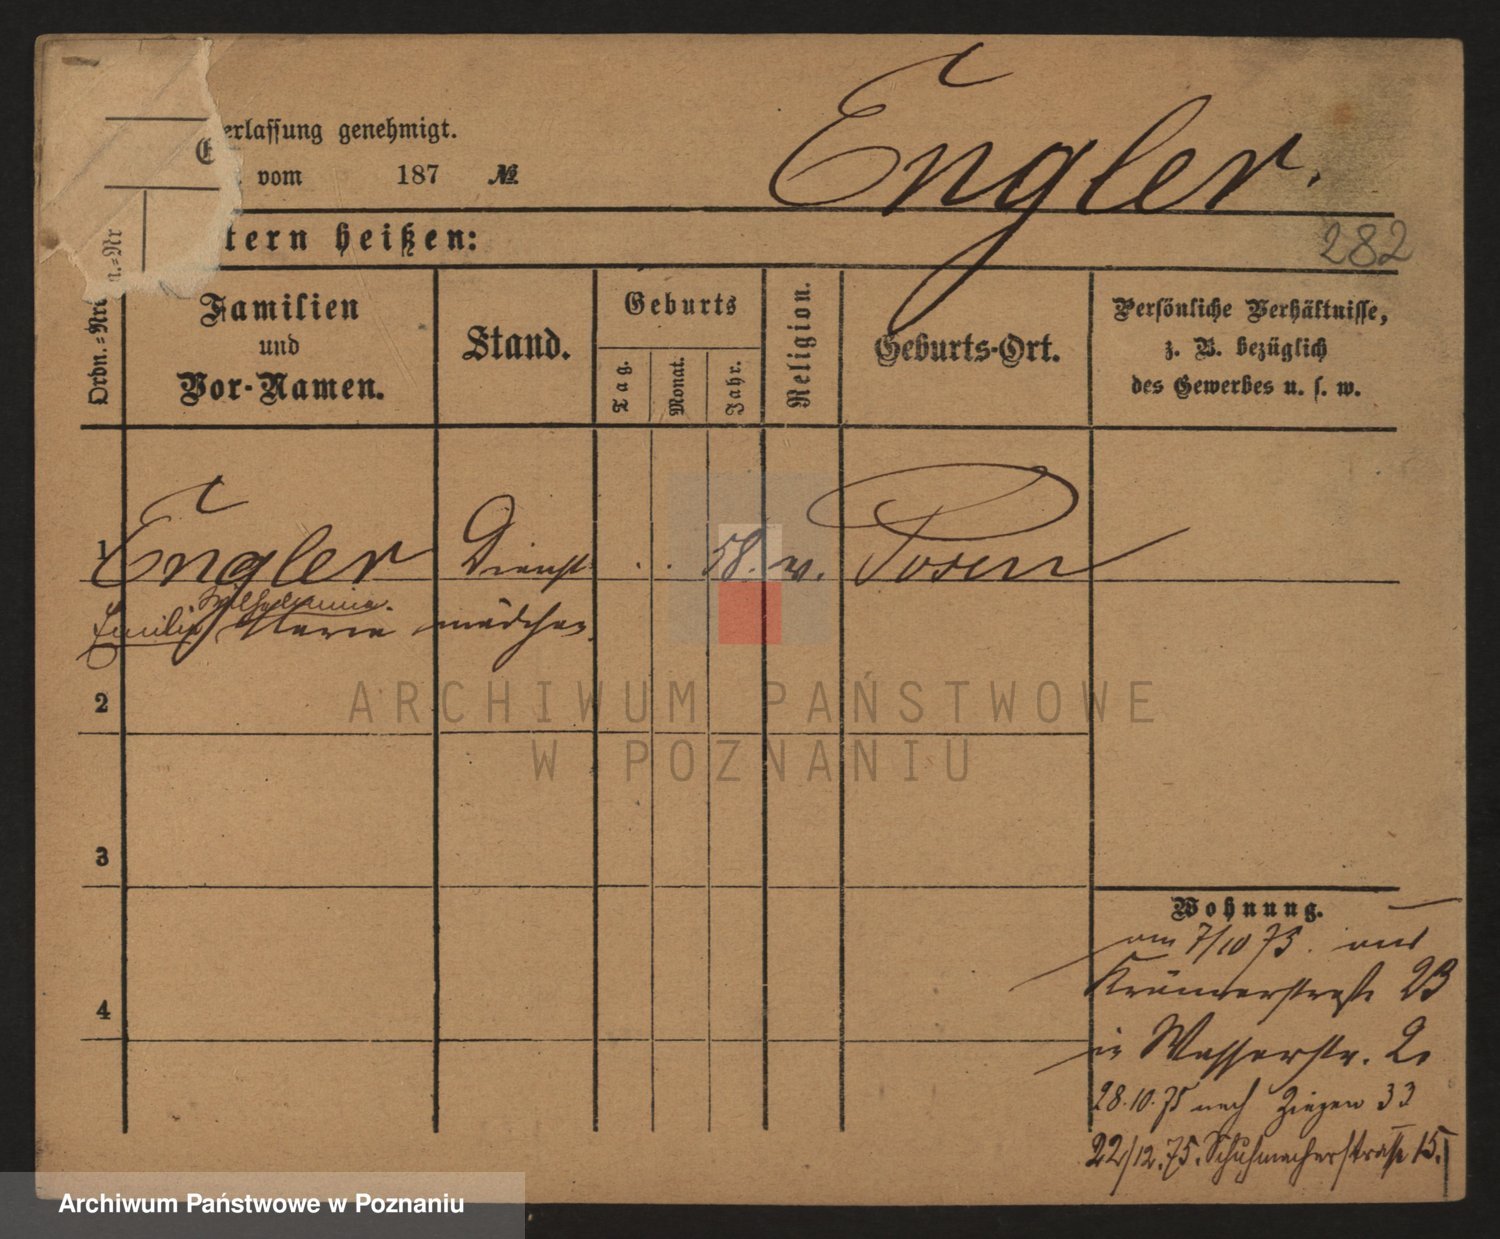 Engler.
erlassung genehmigt.
E
vom 187 №
tern heißen:
282
Ordn.=Nr
n.=Nr
Familien
und
Vor-Namen.
Stand.
Geburts
Tag.
Monat.
Jahr.
Religion.
Geburts-Ort.
Persönliche Verhältnisse,
z. B. bezüglich
des Gewerbes u. s. w.
1 Engler Dienst 58. Posen
Wilhelmina.
Emilie Maria mädchen
2
3
4
Wohnung.
am 7/10 75. aus
Krämerstraße 23
in Wasserstr. 2.
28.10.75 nach Ziegen 33
22/12.75. Schuhmacherstraße 15.
ARCHIWUM PAŃSTWOWE
W POZNANIU
Archiwum Państwowe w Poznaniu